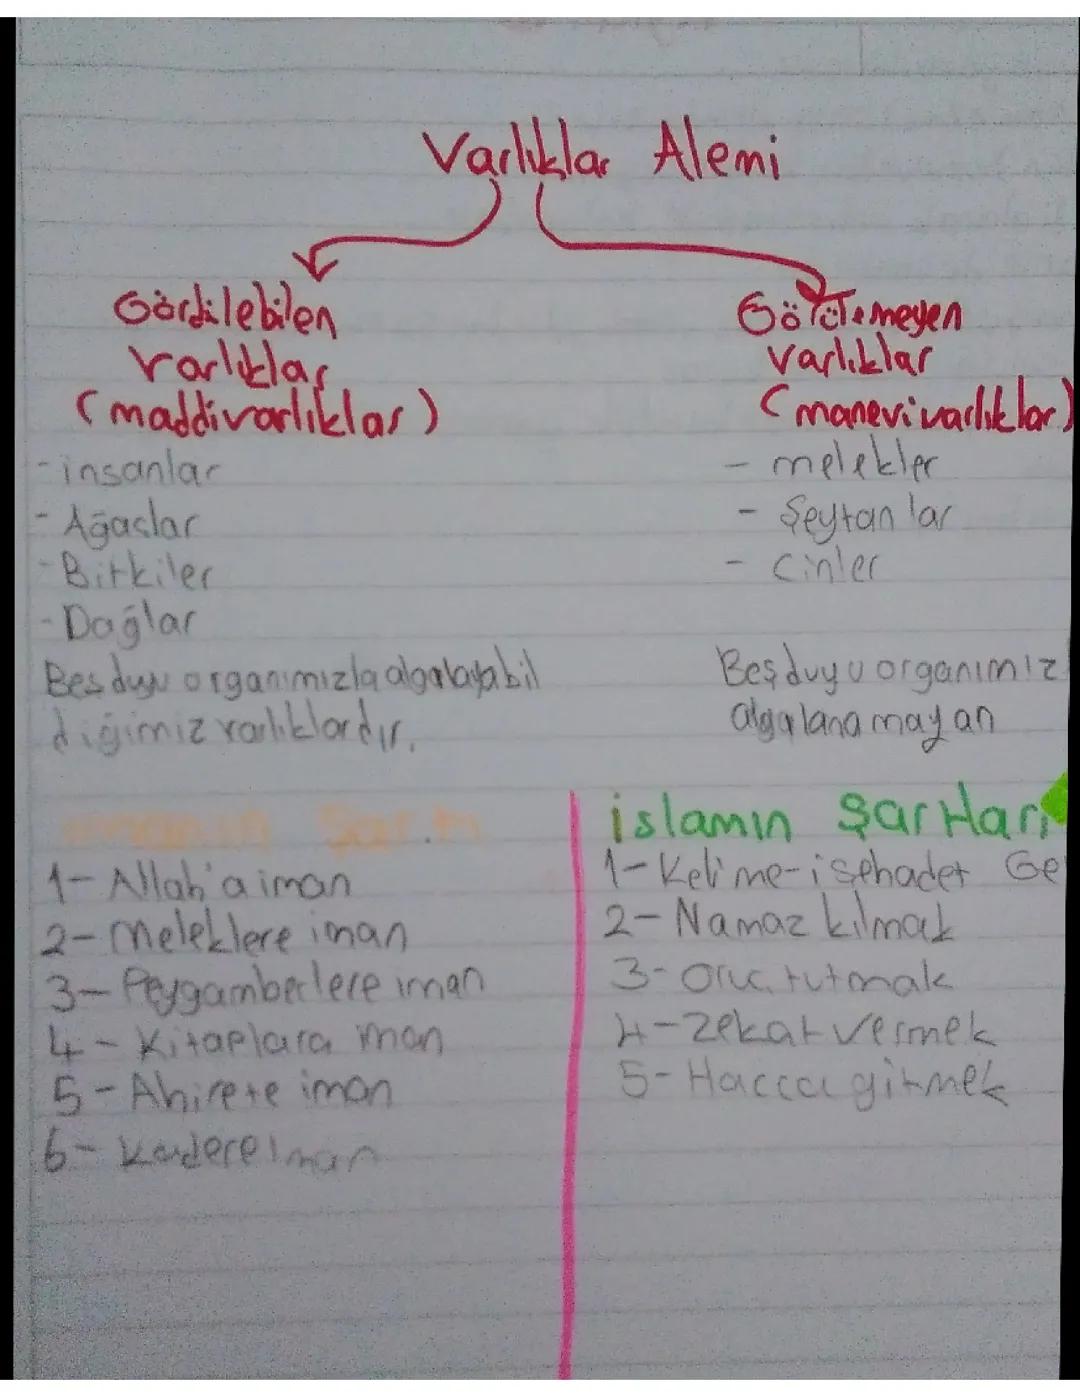 Varlıklar Alemi
Gördilebilen
varlıklar
(maddi varlıklar)
- insanlar
- Ağaçlar
- Bitkiler
- Dağlar
Beş duyu organımızla algalayabil
diğimiz varlıklardır.
Görülemeyen
varlıklar
(manevi varlıklar)
- melekler
- Şeytanlar
- Cinler
Beş duyu organımız
algalanamayan
imanın Şartı
1- Allah'a iman
2- Meleklere iman
3- Peygamberlere iman
4- Kitaplara iman
5- Ahirete iman
6- Kadere iman
islamın şartları
1- Kelime-i şehadet Ge
2- Namaz kılmak
3- Oruç tutmak
4- Zekat vermek
5- Hacca gitmek